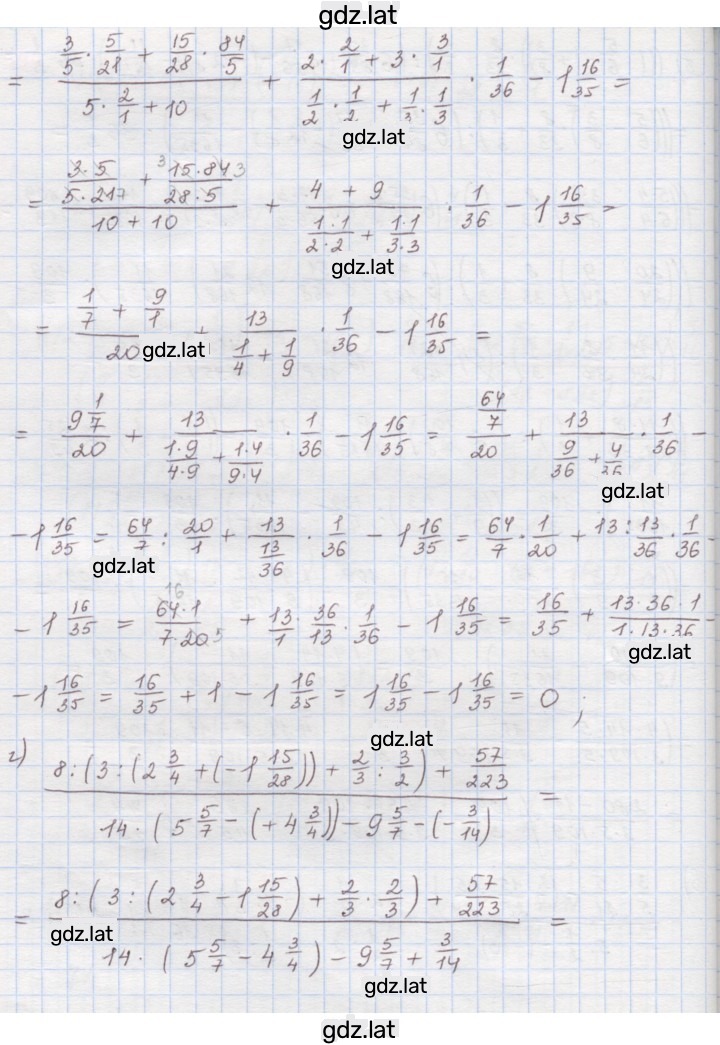 gdz.lat
= (3/5 · 5/21 + 15/28 · 84/5)/(5 · 2/1 + 10) + (2 · 2/1 + 3 · 3/1)/(1/2 · 1/2 + 1/3 · 1/3) · 1/36 − 1 16/35 =
gdz.lat
= ((3·5)/(5·21 7) + (3 15·84 3)/(28·5))/(10 + 10) + (4 + 9)/((1·1)/(2·2) + (1·1)/(3·3)) · 1/36 − 1 16/35 =
gdz.lat
= (1/7 + 9/1)/20 + 13/(1/4 + 1/9) · 1/36 − 1 16/35 =
gdz.lat
= (9 1/7)/20 + 13/((1·9)/(4·9) + (1·4)/(9·4)) · 1/36 − 1 16/35 = (64/7)/20 + 13/(9/36 + 4/36) · 1/36 −
gdz.lat
− 1 16/35 = 64/7 : 20/1 + 13/(13/36) · 1/36 − 1 16/35 = 64/7 · 1/20 + 13 : 13/36 · 1/36 −
gdz.lat
− 1 16/35 = (16 64·1)/(7·20 5) + 13/1 · 36/13 · 1/36 − 1 16/35 = 16/35 + (13·36·1)/(1·13·36) −
gdz.lat
− 1 16/35 = 16/35 + 1 − 1 16/35 = 1 16/35 − 1 16/35 = 0 ;
gdz.lat
г) (8 : (3 : (2 3/4 + (−1 15/28)) + 2/3 : 3/2) + 57/223)/(14 · (5 5/7 − (+4 3/4)) − 9 5/7 − (−3/14)) =
= (8 : (3 : (2 3/4 − 1 15/28) + 2/3 · 2/3) + 57/223)/(14 · (5 5/7 − 4 3/4) − 9 5/7 + 3/14) =
gdz.lat
gdz.lat
gdz.lat